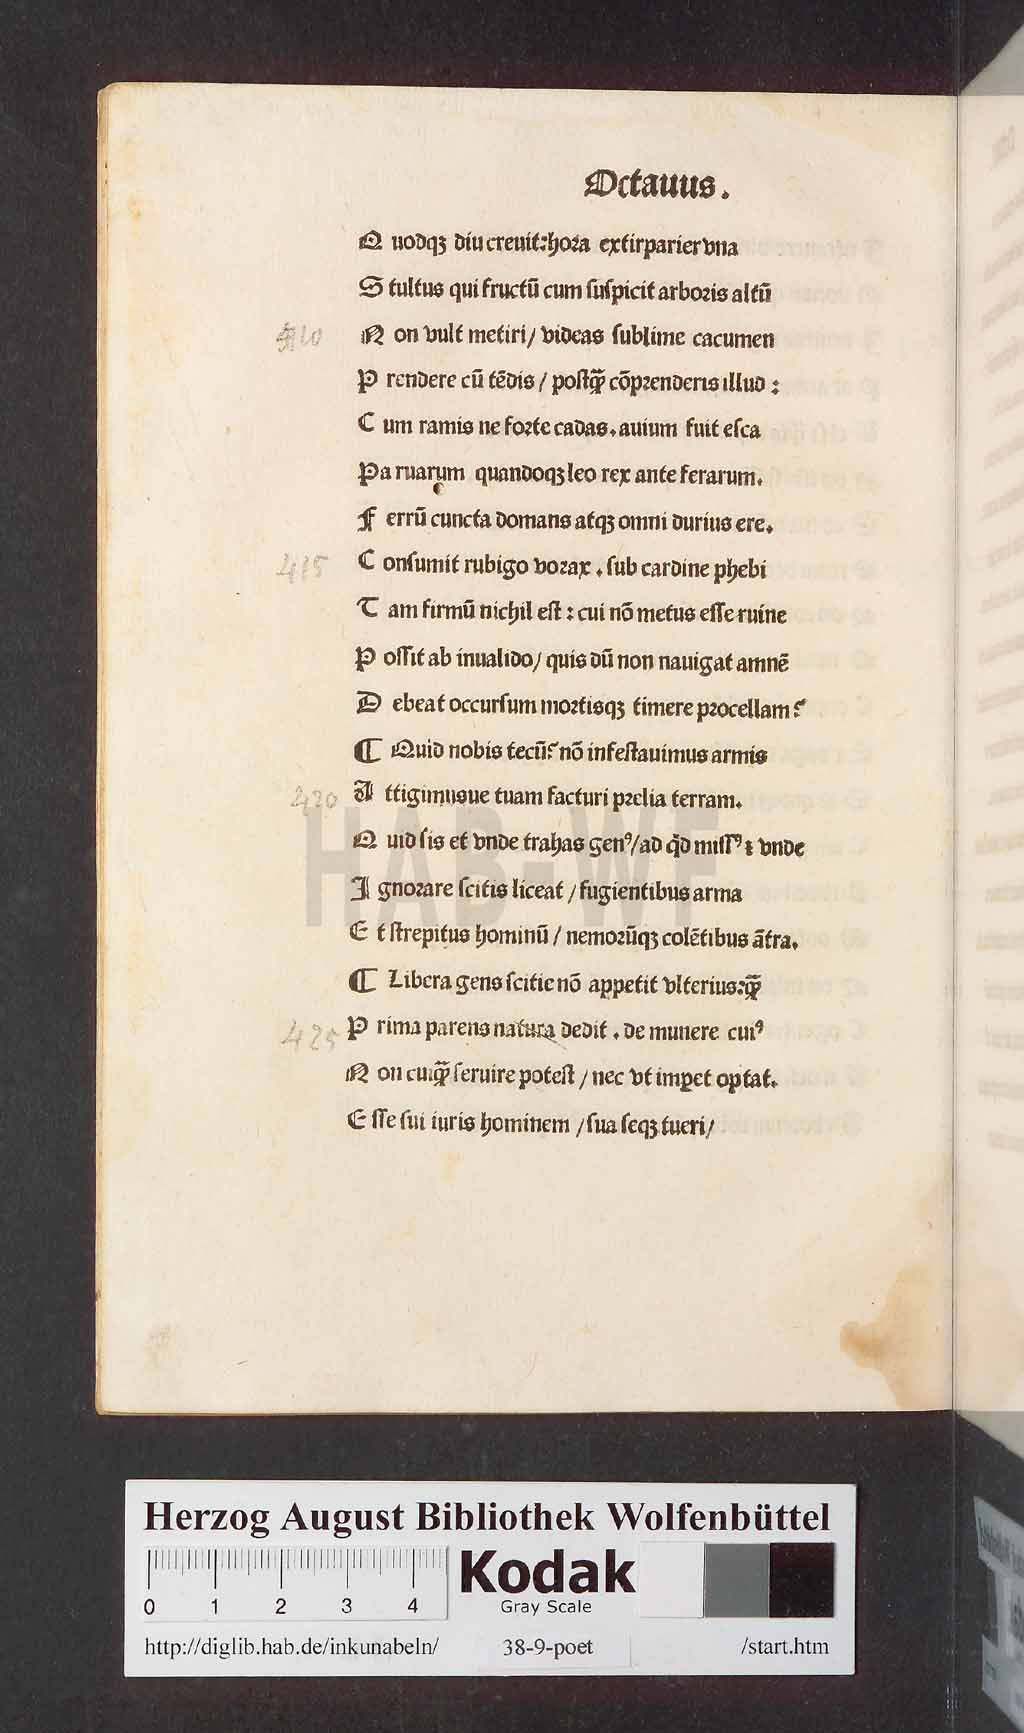 Octauus.
Q uodqʒ diu creuit:hora extirparier vna
S tultus qui fructū cum ſuſpicit arboris altū
410
N on vult metiri/ videas ſublime cacumen
P rendere cū tēdis / poſtꝙ̄ cōprenderis illud :
C um ramis ne forte cadas.auium fuit eſca
Pa ruarum quandoqʒ leo rex ante ferarum.
F errū cuncta domans atqʒ omni durius ere.
415
C onſumit rubigo vorax . ſub cardine phebi
T am firmū nichil eſt : cui nō metus eſſe ruine
P oſſit ab inualido/ quis dū non nauigat amnē
D ebeat occurſum mortisqʒ timere procellam?
¶ Quid nobis tecū? nō infeſtauimus armis
420
A ttigimusue tuam facturi prelia terram.
Q uid ſis et vnde trahas genꝰ/ad qd̄ miſſꝰ: vnde
I gnorare ſcitis liceat / fugientibus arma
E t ſtrepitus hominū / nemorūqʒ colētibus ātra.
¶ Libera gens ſcitie nō appetit vlterius:ꝙ̄
425
P rima parens natura dedit . de munere cuiꝰ
N on cuiꝙ̄ ſeruire poteſt / nec vt impet optat.
E ſſe ſui iuris hominem / ſua ſeqʒ tueri/
HAB-WF
Herzog August Bibliothek Wolfenbüttel
0 1 2 3 4
Kodak
Gray Scale
http://diglib.hab.de/inkunabeln/ 38-9-poet /start.htm